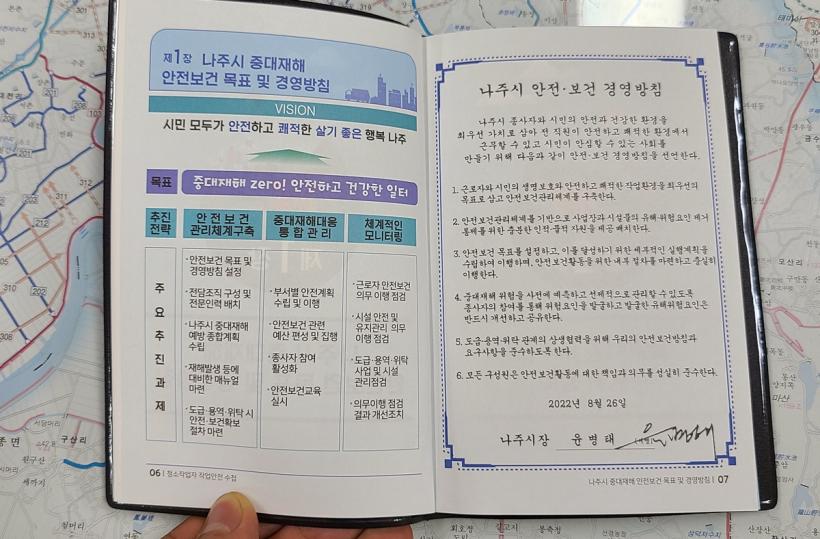 제1장 나주시 중대재해
안전보건 목표 및 경영방침
VISION
시민 모두가 안전하고 쾌적한 살기 좋은 행복 나주
목표
중대재해 zero! 안전하고 건강한 일터
추진
전략
안 전 보 건
관리체계구축
중대재해대응
통 합 관 리
체계적인
모니터링
주
요
추
진
과
제
· 안전보건 목표 및
경영방침 설정
· 전담조직 구성 및
전문인력 배치
· 나주시 중대재해
예방 종합계획
수립
· 재해발생 등에
대비한 매뉴얼
마련
· 도급·용역·위탁 시
안전·보건확보
절차 마련
· 부서별 안전계획
수립 및 이행
· 안전보건 관련
예산 편성 및 집행
· 종사자 참여
활성화
· 안전보건교육
실시
· 근로자 안전보건
의무 이행 점검
· 시설 안전 및
유지관리 의무
이행 점검
· 도급·용역·위탁
사업 및 시설
관리점검
· 의무이행 점검
결과 개선조치
06 | 청소작업자 작업안전 수첩
나주시 안전·보건 경영방침
나주시 종사자와 시민의 안전과 건강한 환경을
최우선 가치로 삼아 전 직원이 안전하고 쾌적한 환경에서
근무할 수 있고 시민이 안심할 수 있는 사회를
만들기 위해 다음과 같이 안전·보건 경영방침을 선언한다.
1. 근로자와 시민의 생명보호와 안전하고 쾌적한 작업환경을 최우선의
목표로 삼고 안전보건관리체계를 구축한다.
2. 안전보건관리체계를 기반으로 사업장과 시설물의 유해·위험요인 제거
통제를 위한 충분한 인적·물적 자원을 제공 배치한다.
3. 안전보건 목표를 설정하고, 이를 달성하기 위한 세부적인 실행계획을
수립하여 이행하며, 안전보건활동을 위한 내부 절차를 마련하고 충실히
이행한다.
4. 중대재해 위험을 사전에 예측하고 선제적으로 관리할 수 있도록
종사자의 참여를 통해 위험요인을 발굴하고 발굴한 유해·위험요인은
반드시 개선하고 공유한다.
5. 도급·용역·위탁 관계의 상생협력을 위해 우리의 안전보건방침과
요구사항을 준수하도록 한다.
6. 모든 구성원은 안전보건활동에 대한 책임과 의무를 성실히 준수한다.
2022년 8월 26일
나주시장 윤 병 태
나주시 중대재해 안전보건 목표 및 경영방침 | 07